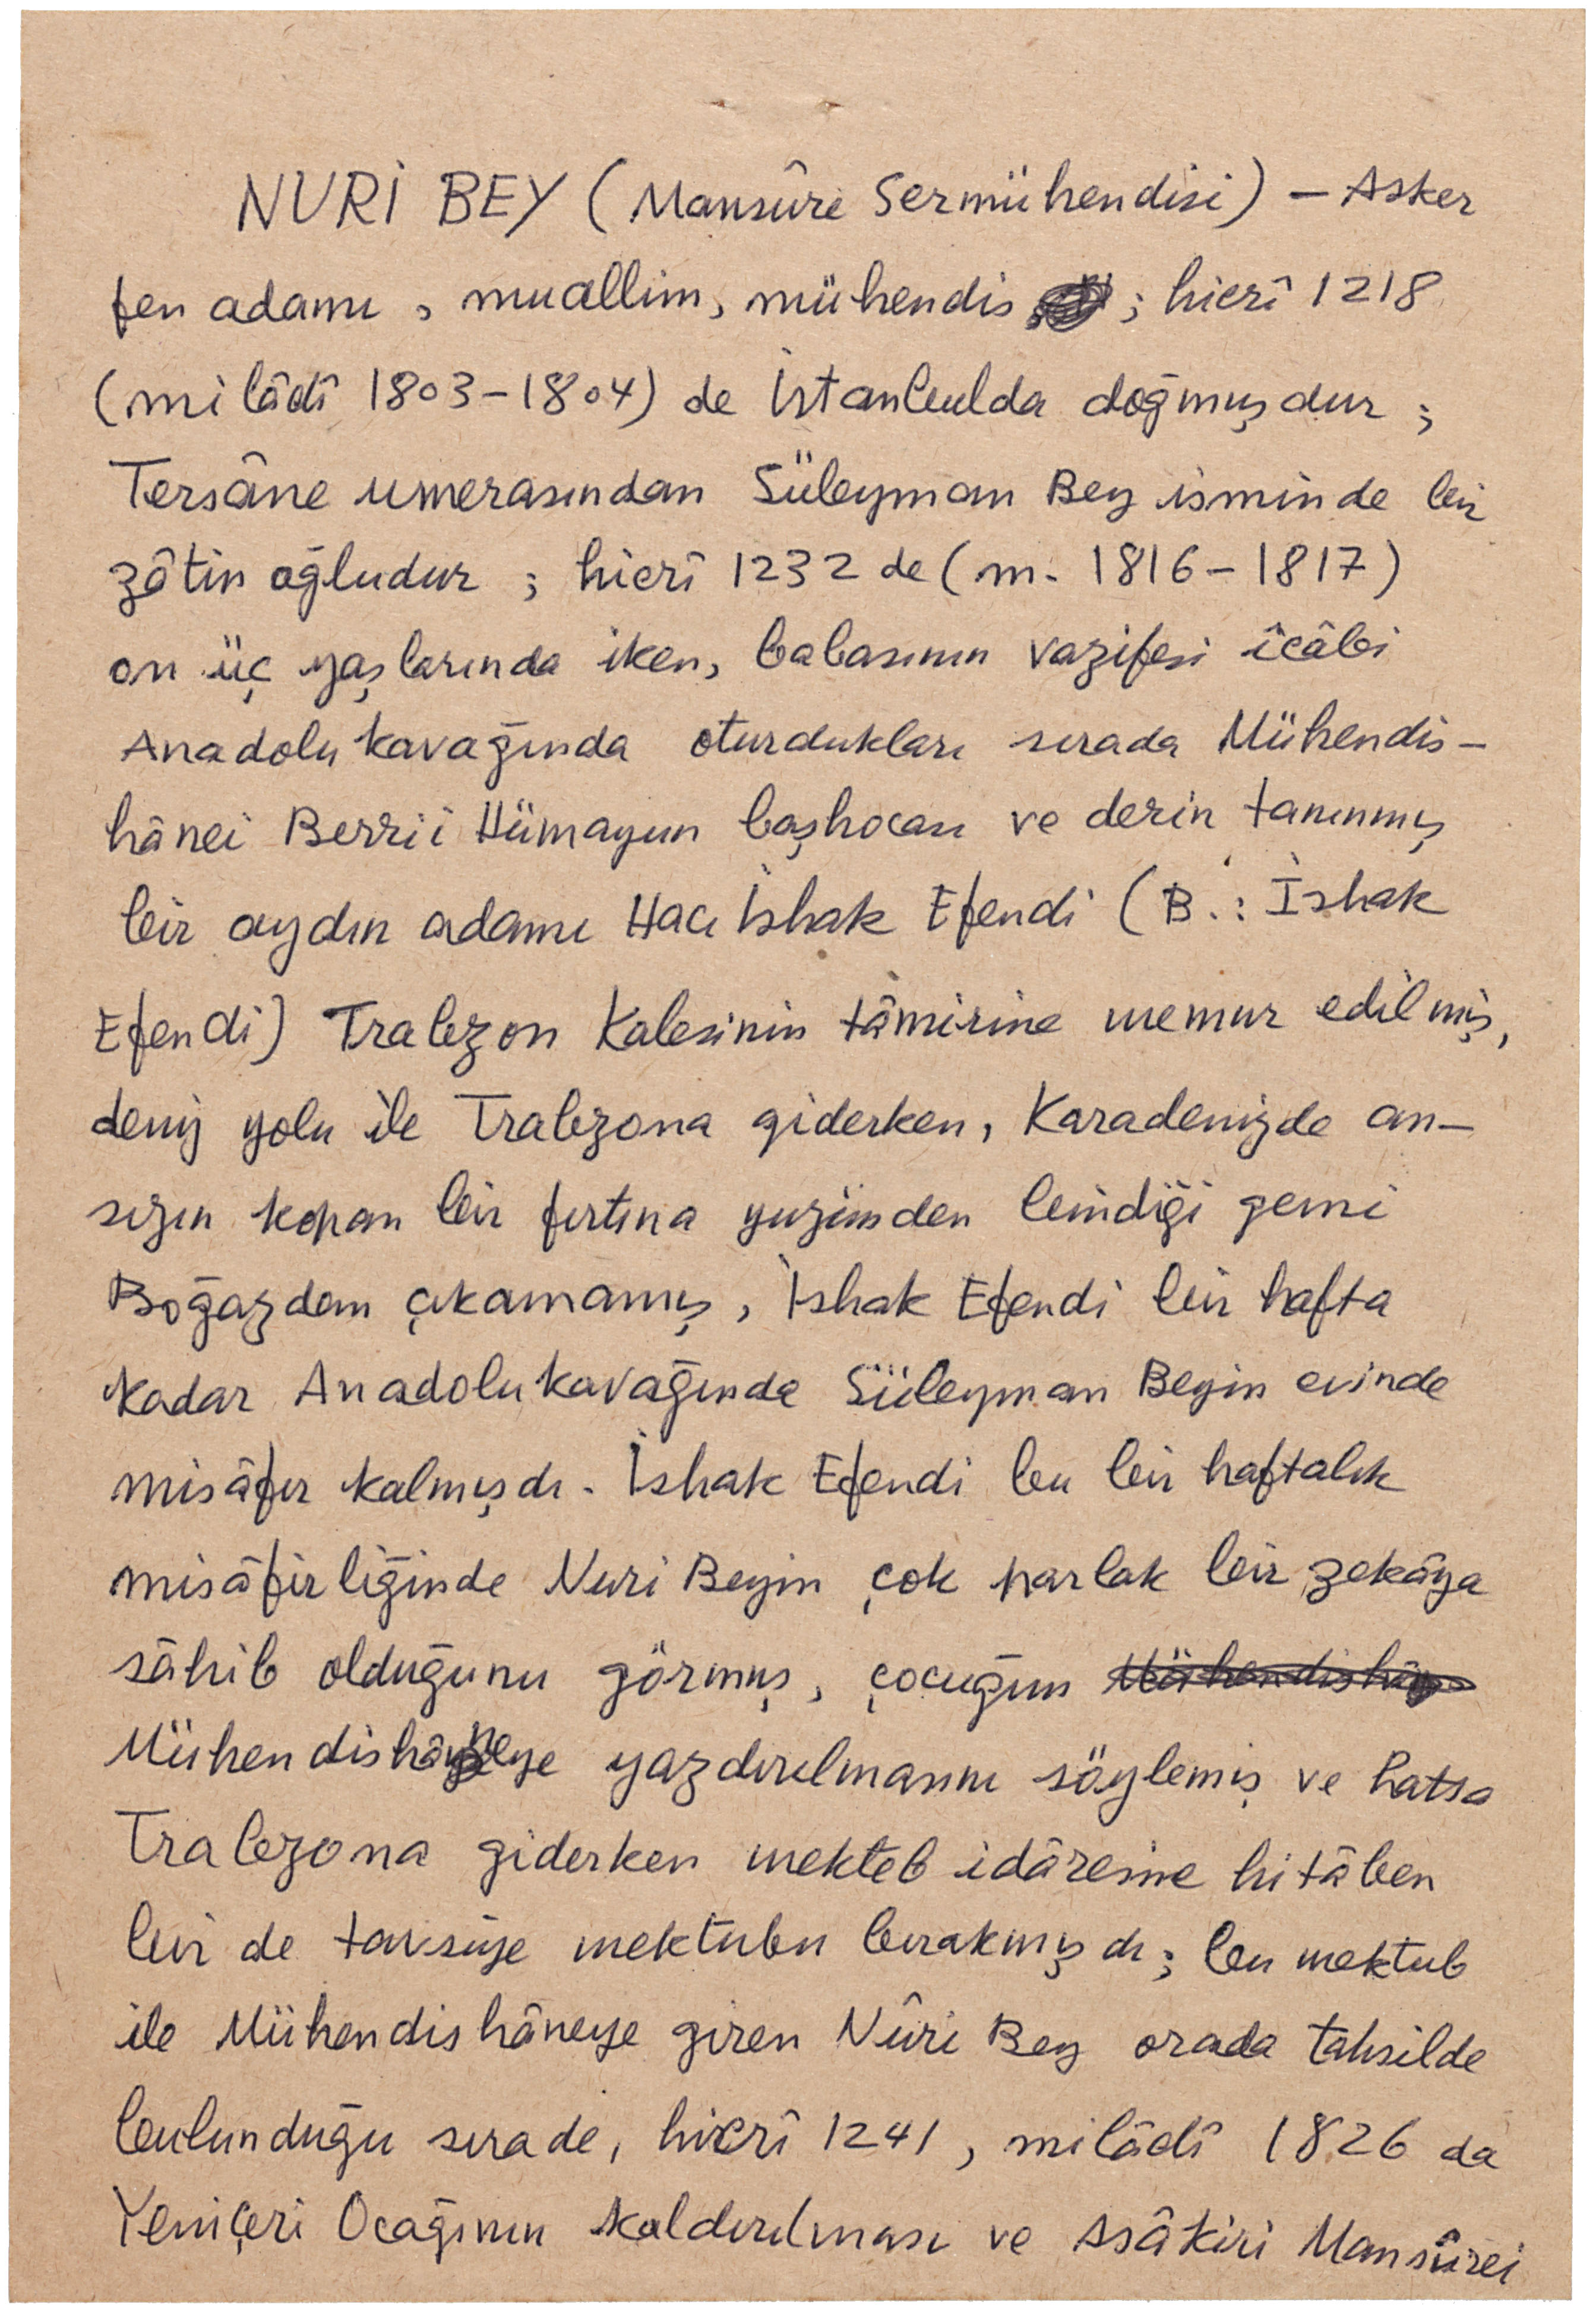 NURİ BEY (Mansûre Sermühendisi) — Asker
fen adamı, muallim, mühendis ; hicrî 1218
(milâdî 1803-1804) de İstanbulda doğmuşdur ;
Tersâne umerasından Süleyman Bey isminde bir
zâtin oğludur ; hicrî 1232 de (m. 1816-1817)
on üç yaşlarında iken, babasının vazifesi îcâbı
Anadolukavağında oturdukları sırada Mühendis-
hânei Berrii Hümayun başhocası ve derin tanınmış
bir aydın adamı Hacı İshak Efendi (B.: İshak
Efendi) Trabzon Kalesinin tâmirine memur edilmiş,
deniz yolu ile Trabzona giderken, Karadenizde an-
sızın kopan bir fırtına yuzünden bindiği gemi
Boğazdan çıkamamış, İshak Efendi bir hafta
kadar Anadolukavağında Süleyman Beyin evinde
misâfir kalmışdı. İshak Efendi bu bir haftalık
misâfirliğinde Nuri Beyin çok parlak bir zekâya
sâhib olduğunu görmüş, çocuğun Mühendishâne
Mühendishâneye yazdırılmasını söylemiş ve hatta
Trabzona giderken mekteb idâresine hitâben
bir de tavsiye mektubu bırakmışdı; bu mektub
ile Mühendishâneye giren Nûri Bey orada tahsilde
bulunduğu sırade, hicrî 1241, milâdî 1826 da
Yeniçeri Ocağının kaldırılması ve Asâkiri Mansûrei